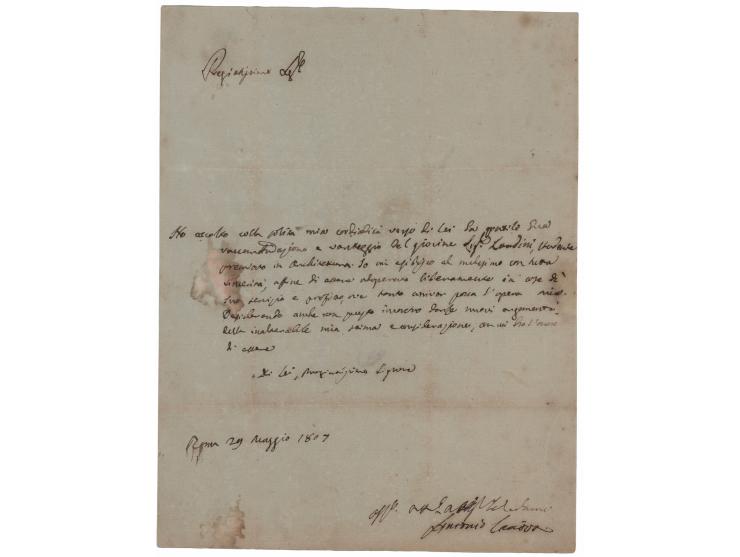 Pregiatissimo Sigre
Ho accolto colla solita mia cordialità verso di Lei la gentile Sua
raccomandazione a vantaggio del giovine Sigr. Landini, studente
premiato in Architettura. Io mi esibisco al medesimo con tutta
affine di essere adoperato liberamente in cose di
suo servigio e profitto, ove tanto arrivar possa l'opera mia.
Desiderando anche con questo incontro darle nuovi argomenti
della inalterabile mia stima e considerazione, con cui ho l'onore
di essere
Di Lei, Pregiatissimo Signore
Roma 29 Maggio 1807
Antonio Canova